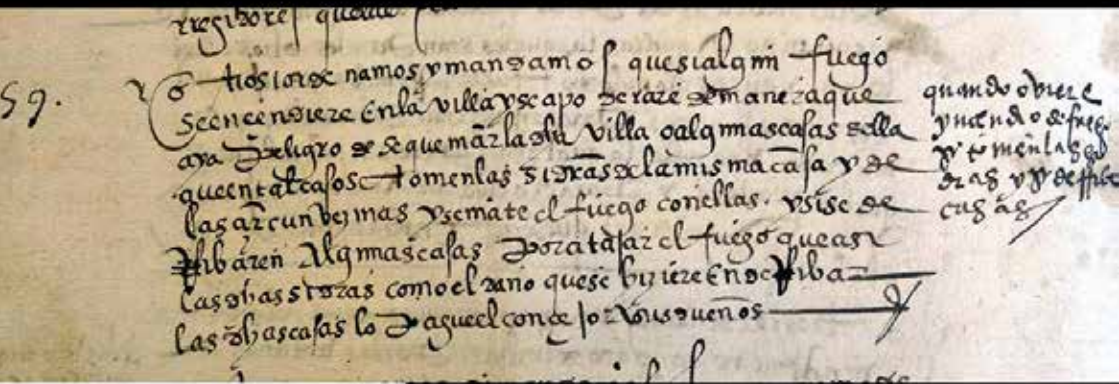 rregidores que
59.
otrosi ordenamos y mandamos. que si algun fuego
se encendiere en la villa y se apoderare de manera que
aya peligro de se quemar la dha villa o algunas casas della
que en tal caso se tomen las sidras de la misma casa y de
las çircunvezinas y se mate el fuego con ellas. y si se de
rribaren algunas casas por atajar el fuego que asi
las dhas sidras como el daño que se hiziere en derribar
las dhas casas lo pague el concejo a sus dueños
quando oviere
yncendio de fuego
tomen las si
dras y se derriben
casas